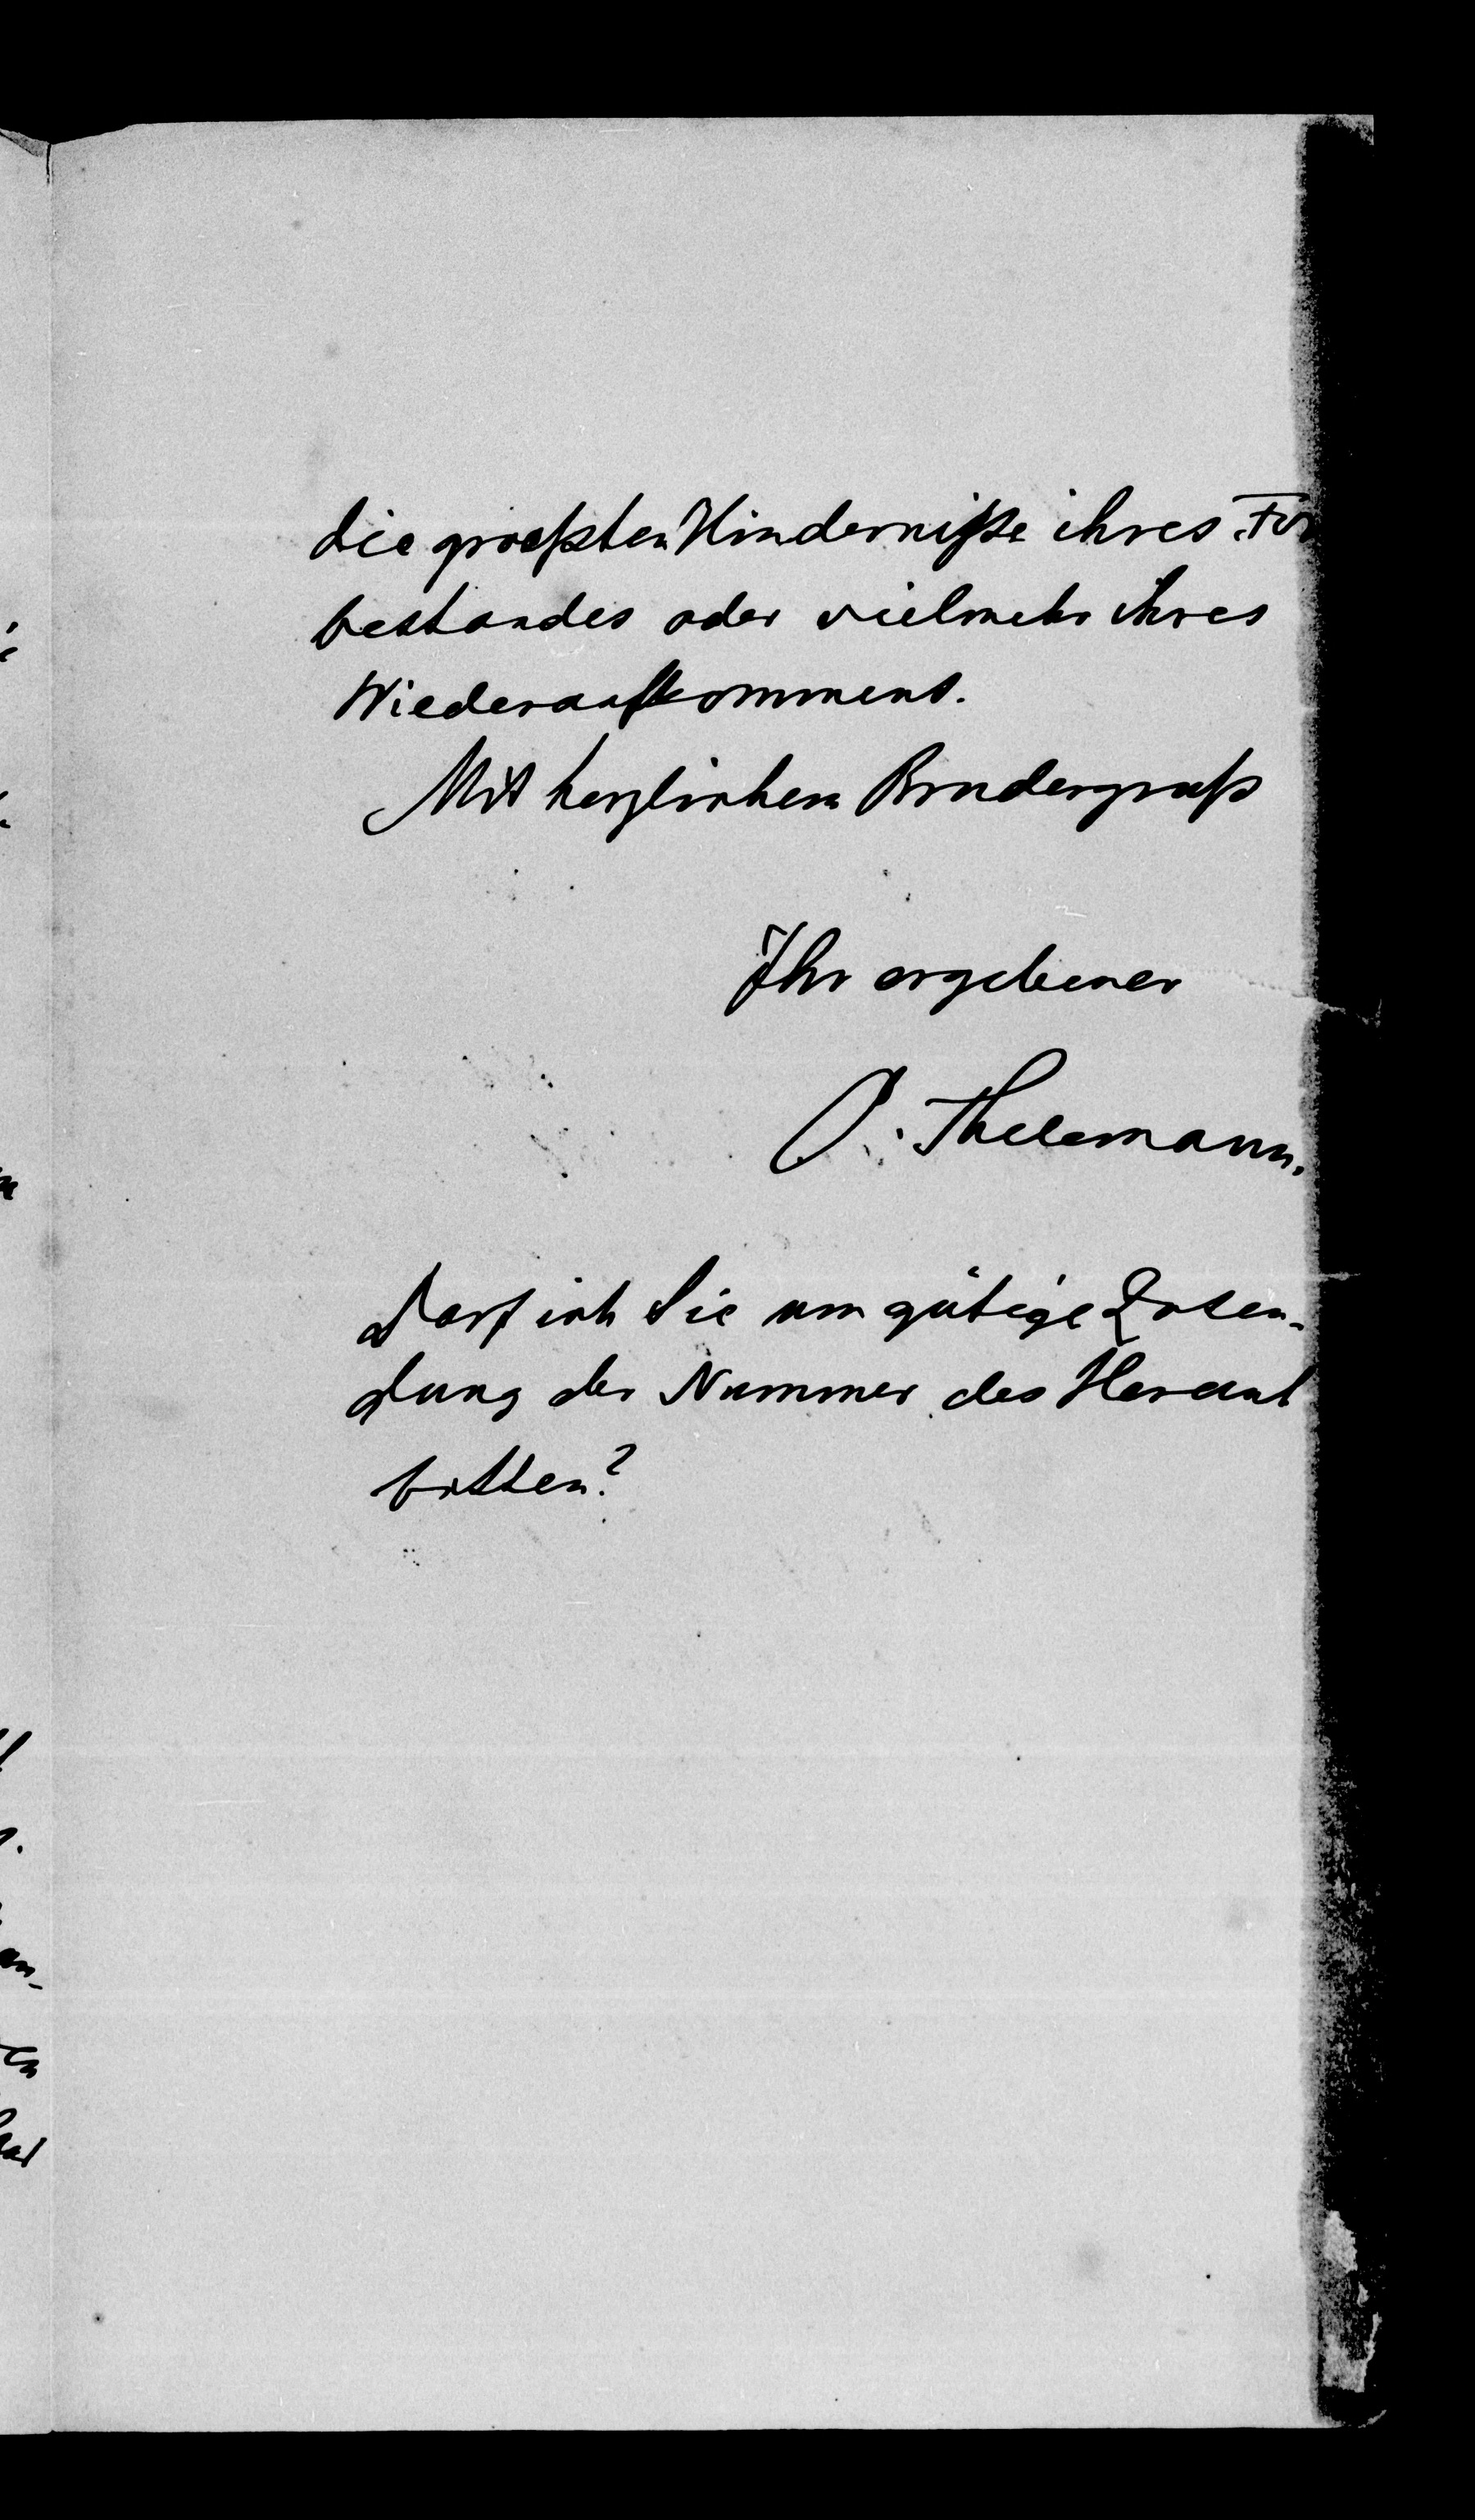 die groeßten Hinderniße ihres For
bestandes oder vielmehr ihres
Wiederaufkommens.
Mit herzlichem Brudergruß
Ihr ergebener
O. Thelemann.
Darf ich Sie um gütige Zusen-
dung der Nummer des Heraut
bitten?